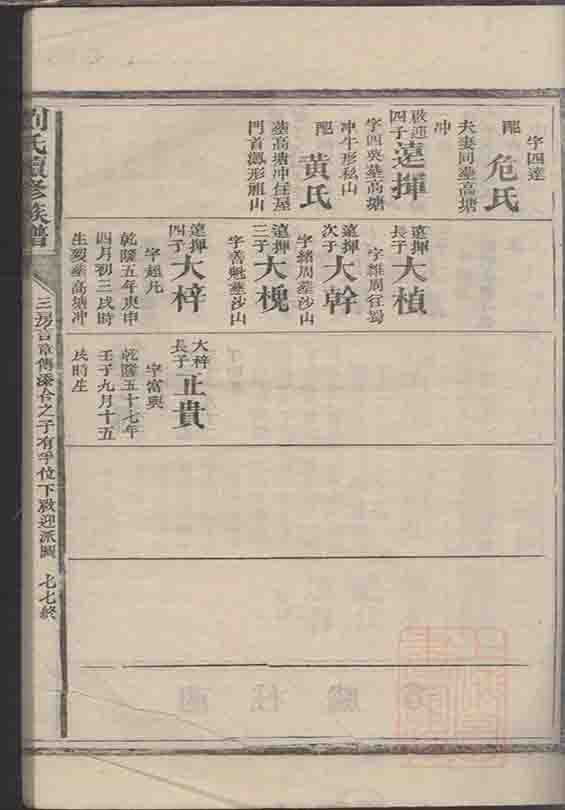 字四達
配
危氏
夫妻同塟高塘
冲
啟迎
四子
遠揮
字四英塟高塘
冲牛形私山
配
黃氏
塟高塘冲任屋
門首獅形祖山
遠揮
長子
大楨
字維周往蜀
遠揮
次子
大幹
字緒周塟沙山
遠揮
三子
大槐
字善魁塟沙山
遠揮
四子
大梓
字超凡
乾隆五年庚申
四月初三戌時
生歿塟高塘冲
大梓
長子
正貴
字富興
乾隆五十七年
壬子九月十五
戌時生
劉氏續修族譜
三房言章傳添合之子有孚位下啟迎派圖
七七終